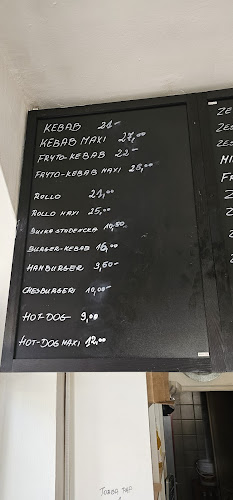 KEBAB 21-
KEBAB MAXI 27,00
FRYTO-KEBAB 22-
FRYTO-KEBAB MAXI 28,00
ROLLO 21,00
ROLLO MAXI 25,00
BUŁKA STUDENCKA 10,50
BURGER-KEBAB 16,00
HAMBURGER 9,50-
CHESBURGERI 10,00-
HOT-DOG 9,00
HOT-DOG MAXI 12,00
ZE
ZES
ZES
MI
FR
Z